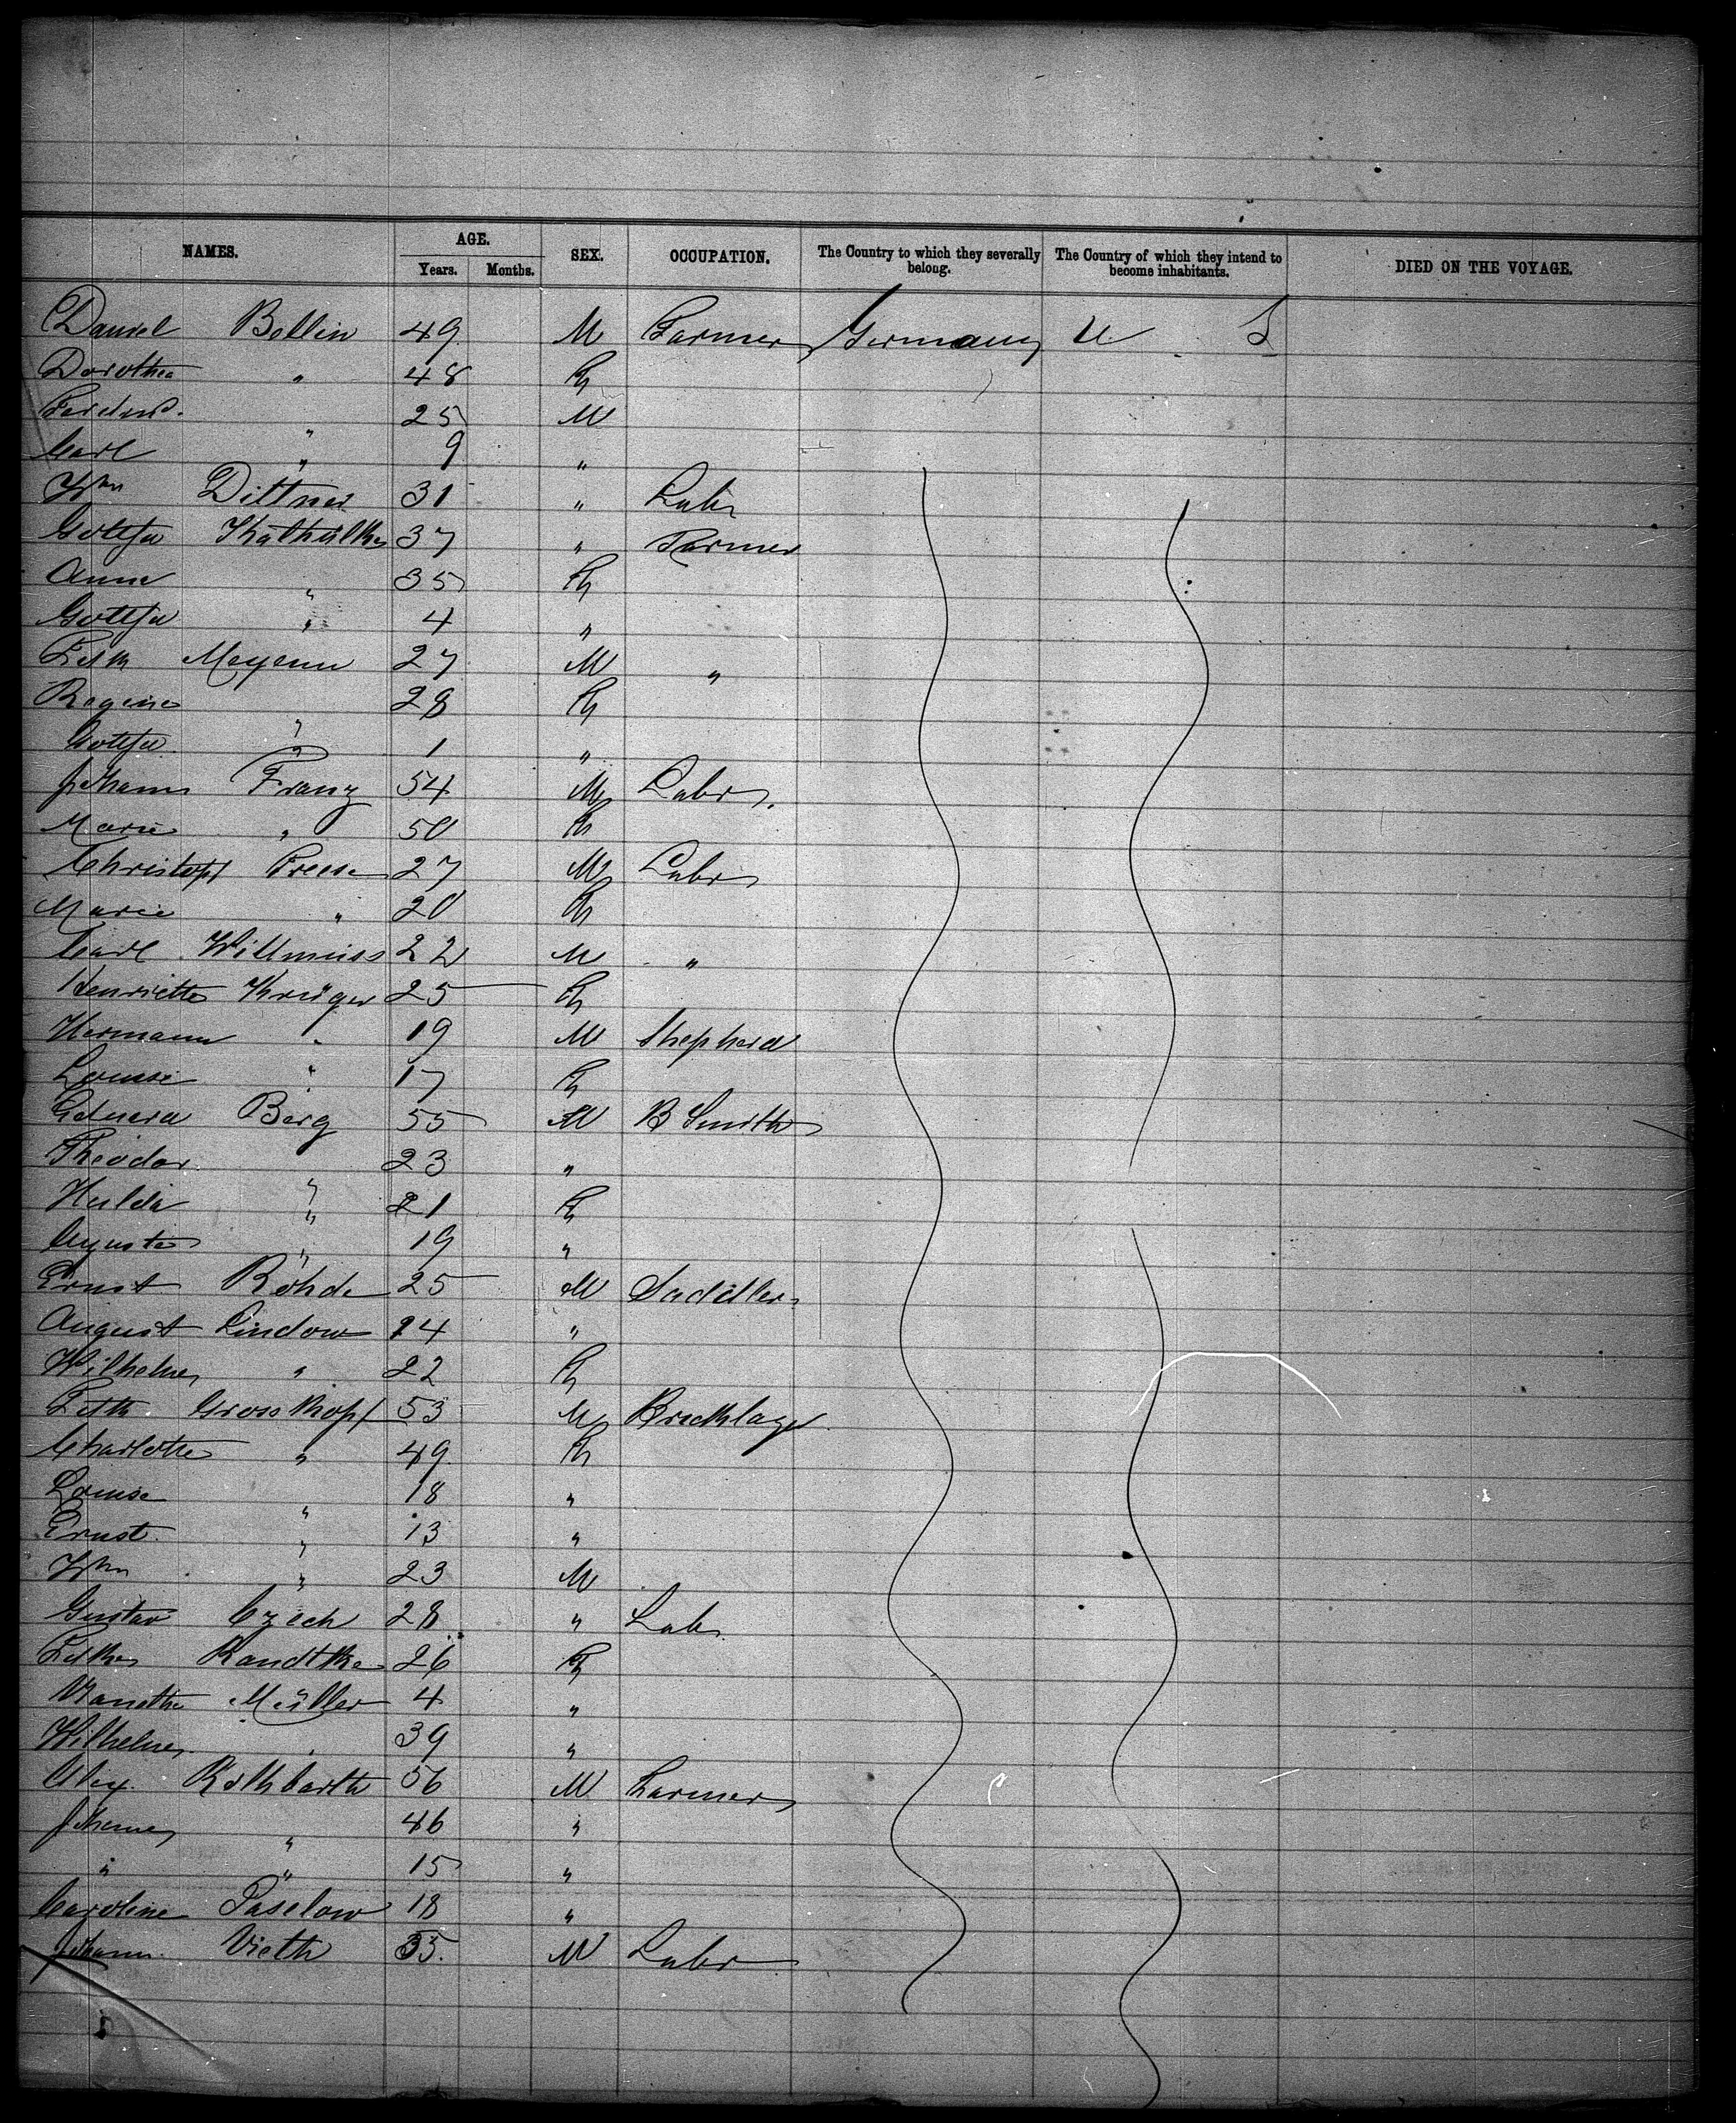 NAMES. AGE. SEX. OCCUPATION. The Country to which they severally belong. The Country of which they intend to become inhabitants. DIED ON THE VOYAGE.
Years. Months.
Daniel Bellin 49 M Farmer Germany U S
Dorothea " 48 F
Ferdind. " 25 M
Carl " 9 "
Wm Dittner 31 " Labr
Gottfr 37 " Farmer
Anna " 35 F
Gottfr " 4 "
Meyenn 27 M "
Regine " 28 F
Gottfr " 1 "
Johann Franz 54 M Labr
Marie " 50 F
Christoph Preese 27 M Labr
Marie " 20 F
Carl Willmuss 22 M "
Henriette Krüger 25 F
Hermann " 19 M Shepherd
Louise " 17 F
Eduard Berg 55 M B Smith
Theodor " 23 "
Hulda " 21 F
Auguste " 19 "
Ernst Rohde 25 M Saddler
August Lindow 24 "
Wilhelme " 22 F
Grosskopf 53 M Bricklayer
Charlotte " 49 F
Louise " 18 "
Ernst " 13 "
Wm " 23 M
Gustav Czech 28 " Lab
Randtke 26 F
Müller 4 "
Wilhelme " 39 "
Alex. Rothbarth 56 M Farmer
" 46 "
" " 15 "
Caroline Paselow 18 "
Johann Vieth 35 M Labr